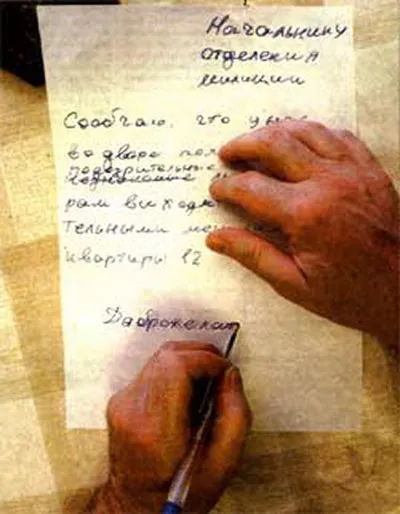 Начальнику
отделения
милиции
Сообчаю, что у нас
во дворе
подозрительные
рам выходю
тельными
квартиры 12
Даброжелат